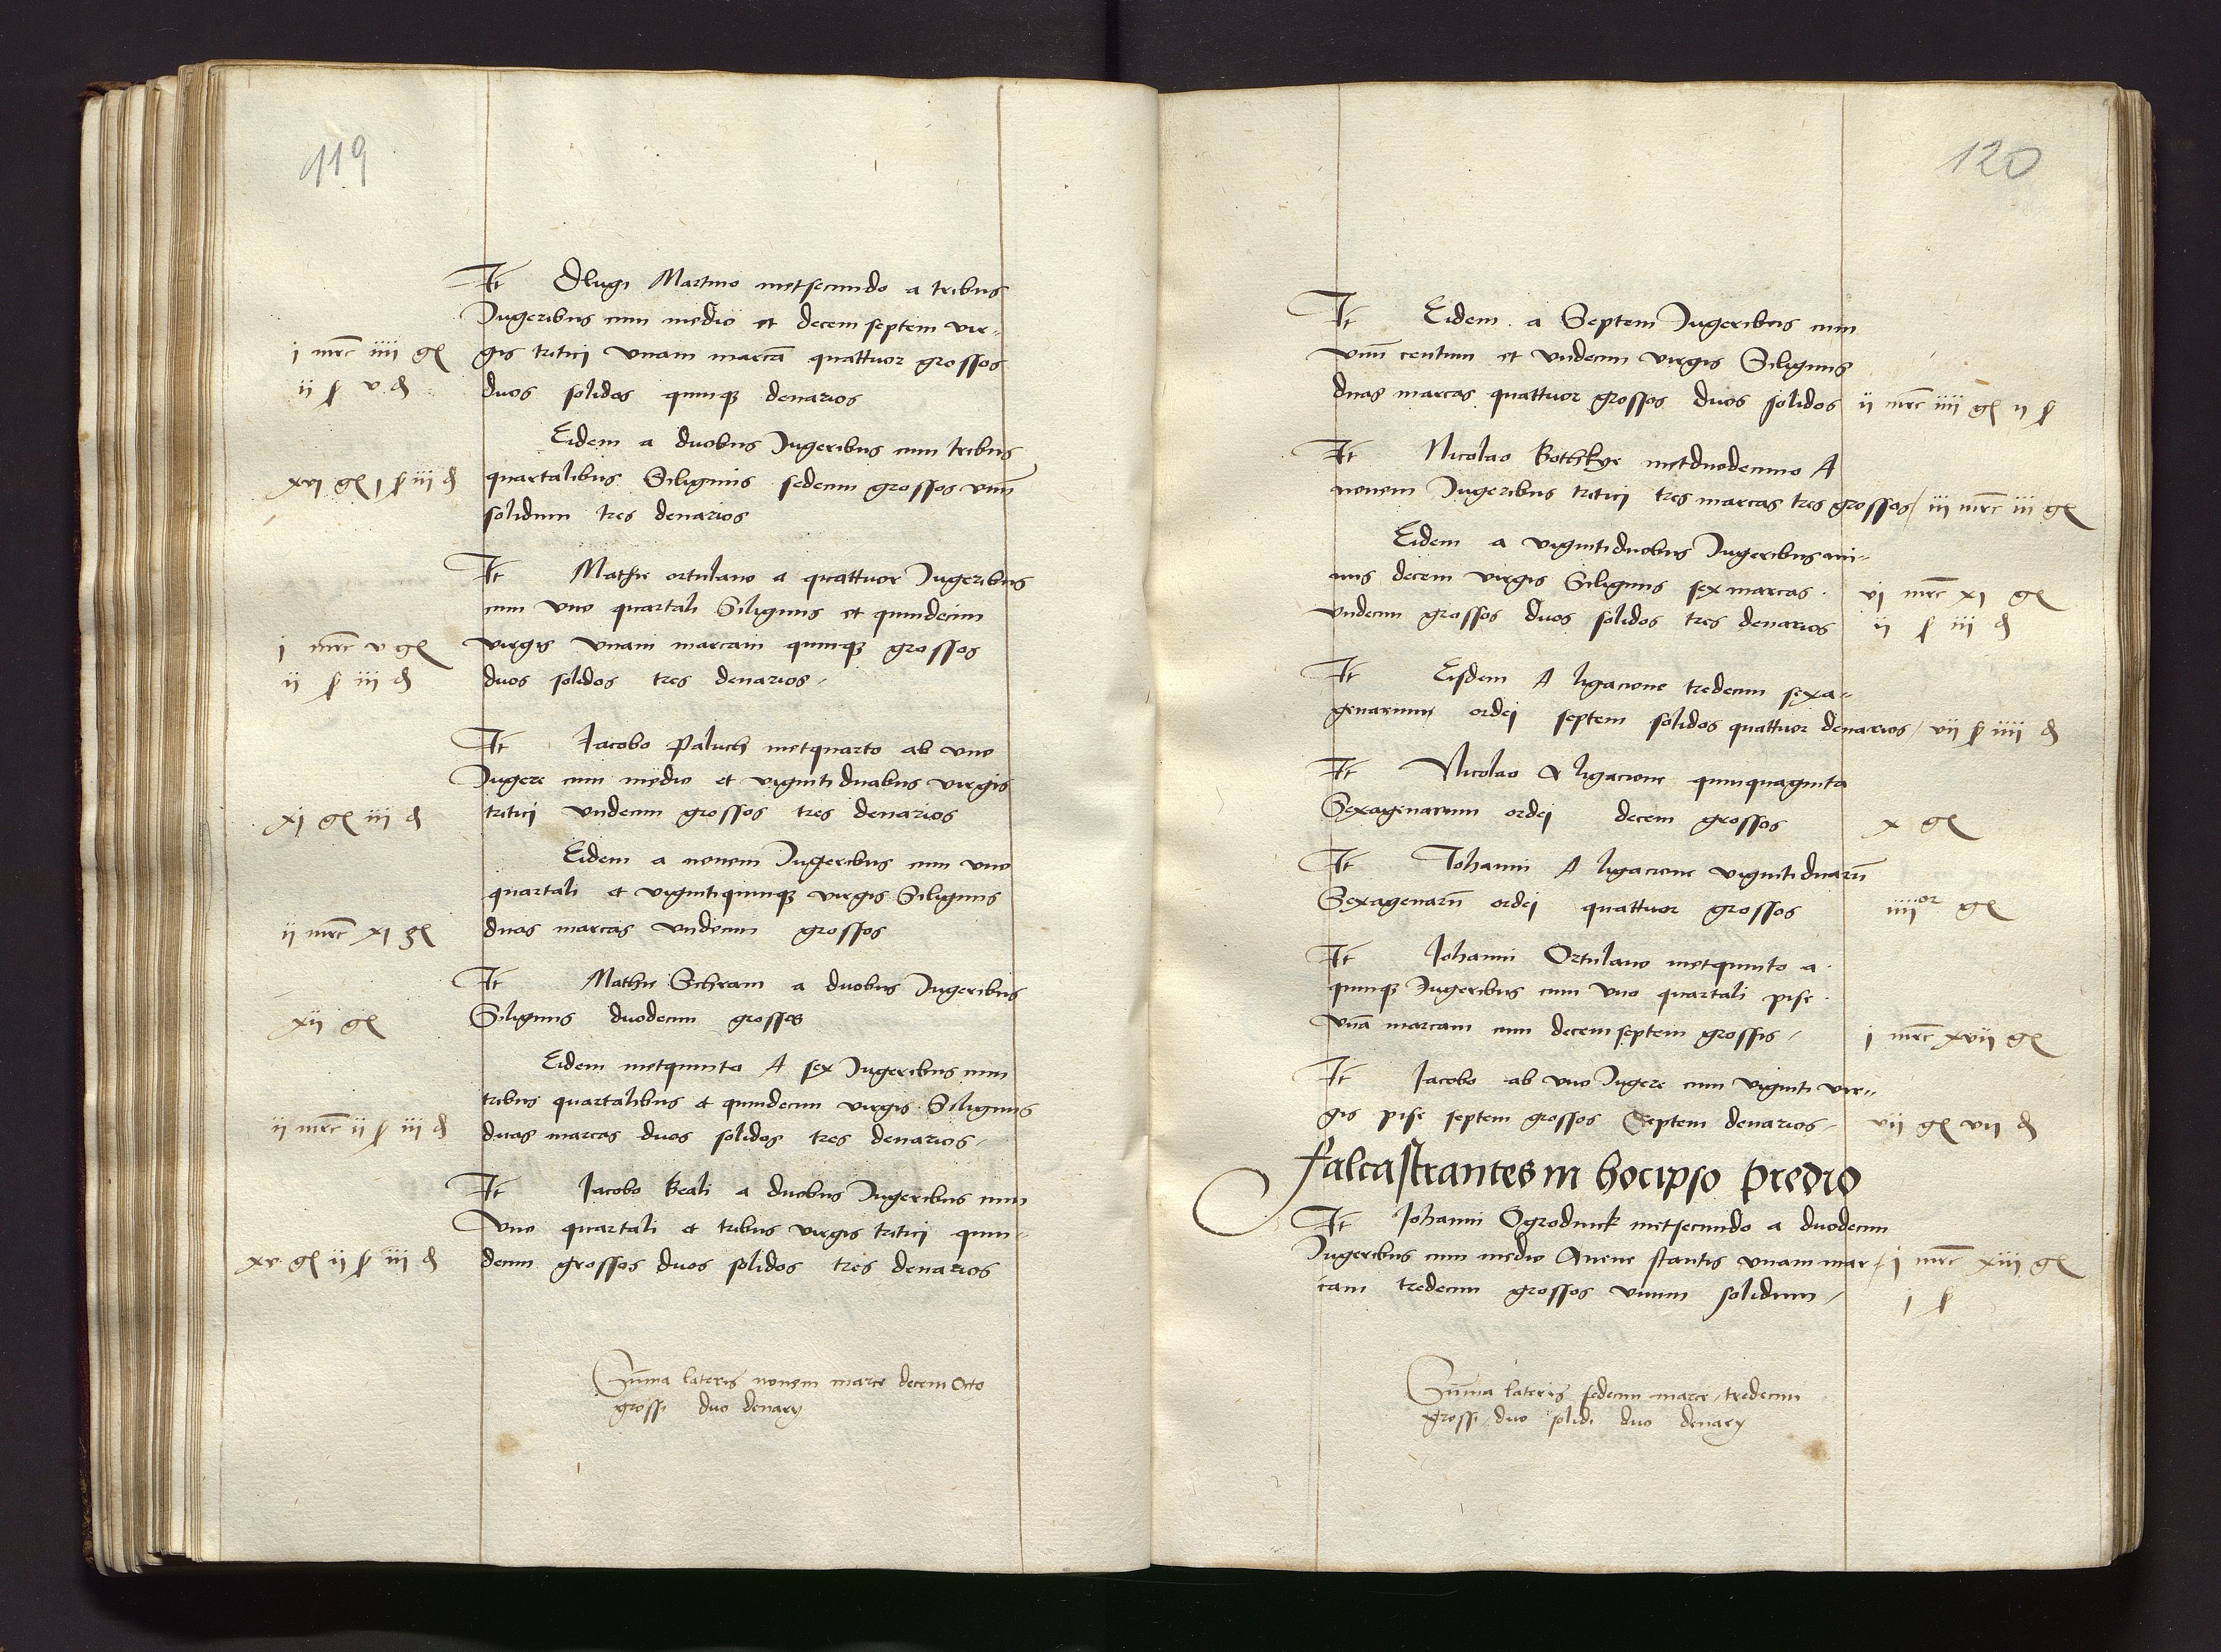 119
It Dlugi Martino metsecundo a tribus
Jugeribus cum medio et decem septem vir-
i mrc iiii gs gis tritici vnam marcā quattuor grossos
ii ſ v d duos solidos quinqȝ denarios
Eidem a duobus Jugeribus cum tribus
xvi gs i ſ iii d quartalibus Siliginis sedecim grossos vnū
solidum tres denarios
It Mathie ortulano a quattuor Jugeribus
cum vno quartali Siliginis et quindecim
i mrc v gs virgis vnam marcam quinqȝ grossos
ii ſ iii d duos solidos tres denarios
It Jacobo Paluch metquarto ab vno
Jugere cum medio et viginti duabus virgis
xi gs iii d tritici vndecim grossos tres denarios
Eidem a nouem Jugeribus cum vno
quartali et vigintiquinqȝ virgis Siliginis
ii mrc xi gs duas marcas vndecim grossos
It Mathie Schram a duobus Jugeribus
xii gs Siliginis duodecim grossos
Eidem metquinto A sex Jugeribus cum
tribus quartalibus et quindecim virgis Siliginis
ii mrc ii ſ iii d duas marcas duos solidos tres denarios
It Jacobo Keali a duobus Jugeribus cum
vno quartali et tribus virgis tritici quin-
xv gs ii ſ iii d decim grossos duos solidos tres denarios
Sūma lateris nouem marce decem Octo
grossi duo denarij
120
It Eidem a Septem Jugeribus cum
vnū centum et vndecim virgis Siliginis
duas marcas quattuor grossos duos solidos ii mrc iiii gs ii ſ
It Nicolao Bothkye metduodecimo A
nouem Jugeribus tritici tres marcas tres grossos iii mrc iii gs
Eidem a vigintiduobus Jugeribus mi-
nus decem virgis Siliginis sex marcas vi mrc xi gs
vndecim grossos duos solidos tres denarios ii ſ iii d
It Eisdem A ligacione tredecim sexa-
genarum ordej septem solidos quattuor denarios vii ſ iiii d
It Nicolao A ligacione quinquaginta
Sexagenarum ordej decem grossos x gs
It Johanni A ligacione vigintiduarū
Sexagenarū ordej quattuor grossos iiiior gs
It Johanni Ortulano metquinto a
quinqȝ Jugeribus cum vno quartali pise
vnā marcam cum decemseptem grossis i mrc xvii gs
It Jacobo ab vno Jugere cum viginti vir-
gis pise septem grossos Septem denarios vii gs vii d
Falcastrantes in hocipso predio
It Johanni Ogrodnick metsecundo a duodecim
Jugeribus cum medio Auene stantis vnam mar- i mrc xiii gs
cam tredecim grossos vnum solidum i ſ
Sūma lateris sedecim marce tredecim
grossi duo solidi duo denarij